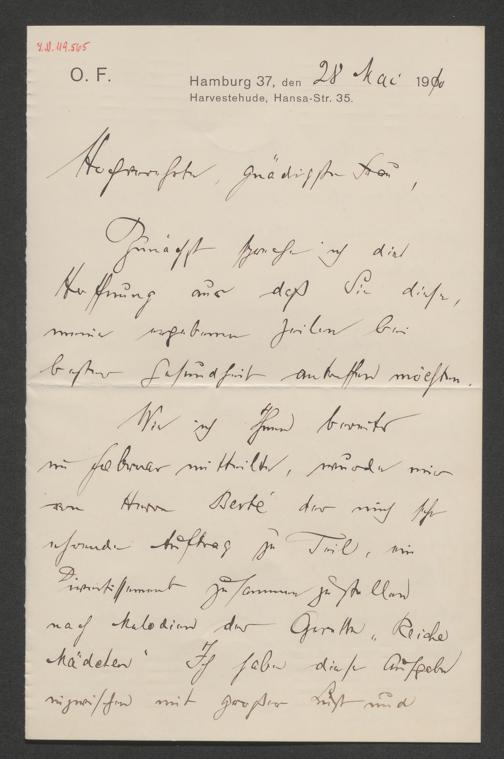 I.N. 119.565
O. F.
Hamburg 37, den 28 Mai 1910
Harvestehude, Hansa-Str. 35.
Hochverehrte, gnädigste Frau,
Zunächst spreche ich die
Hoffnung aus daß Sie diese,
meine ergebenen Zeilen bei
bester Gesundheit antreffen möchten.
Wie ich Ihnen bereits
im Februar mitteilte, wurde mir
von Herrn Berté der mich sehr
ehrende Auftrag zu Teil, ein
Divertissement zusammenzustellen
nach Melodien der Operette „Reiche
Mädchen" Ich habe diese Aufgabe
inzwischen mit großer Lust und